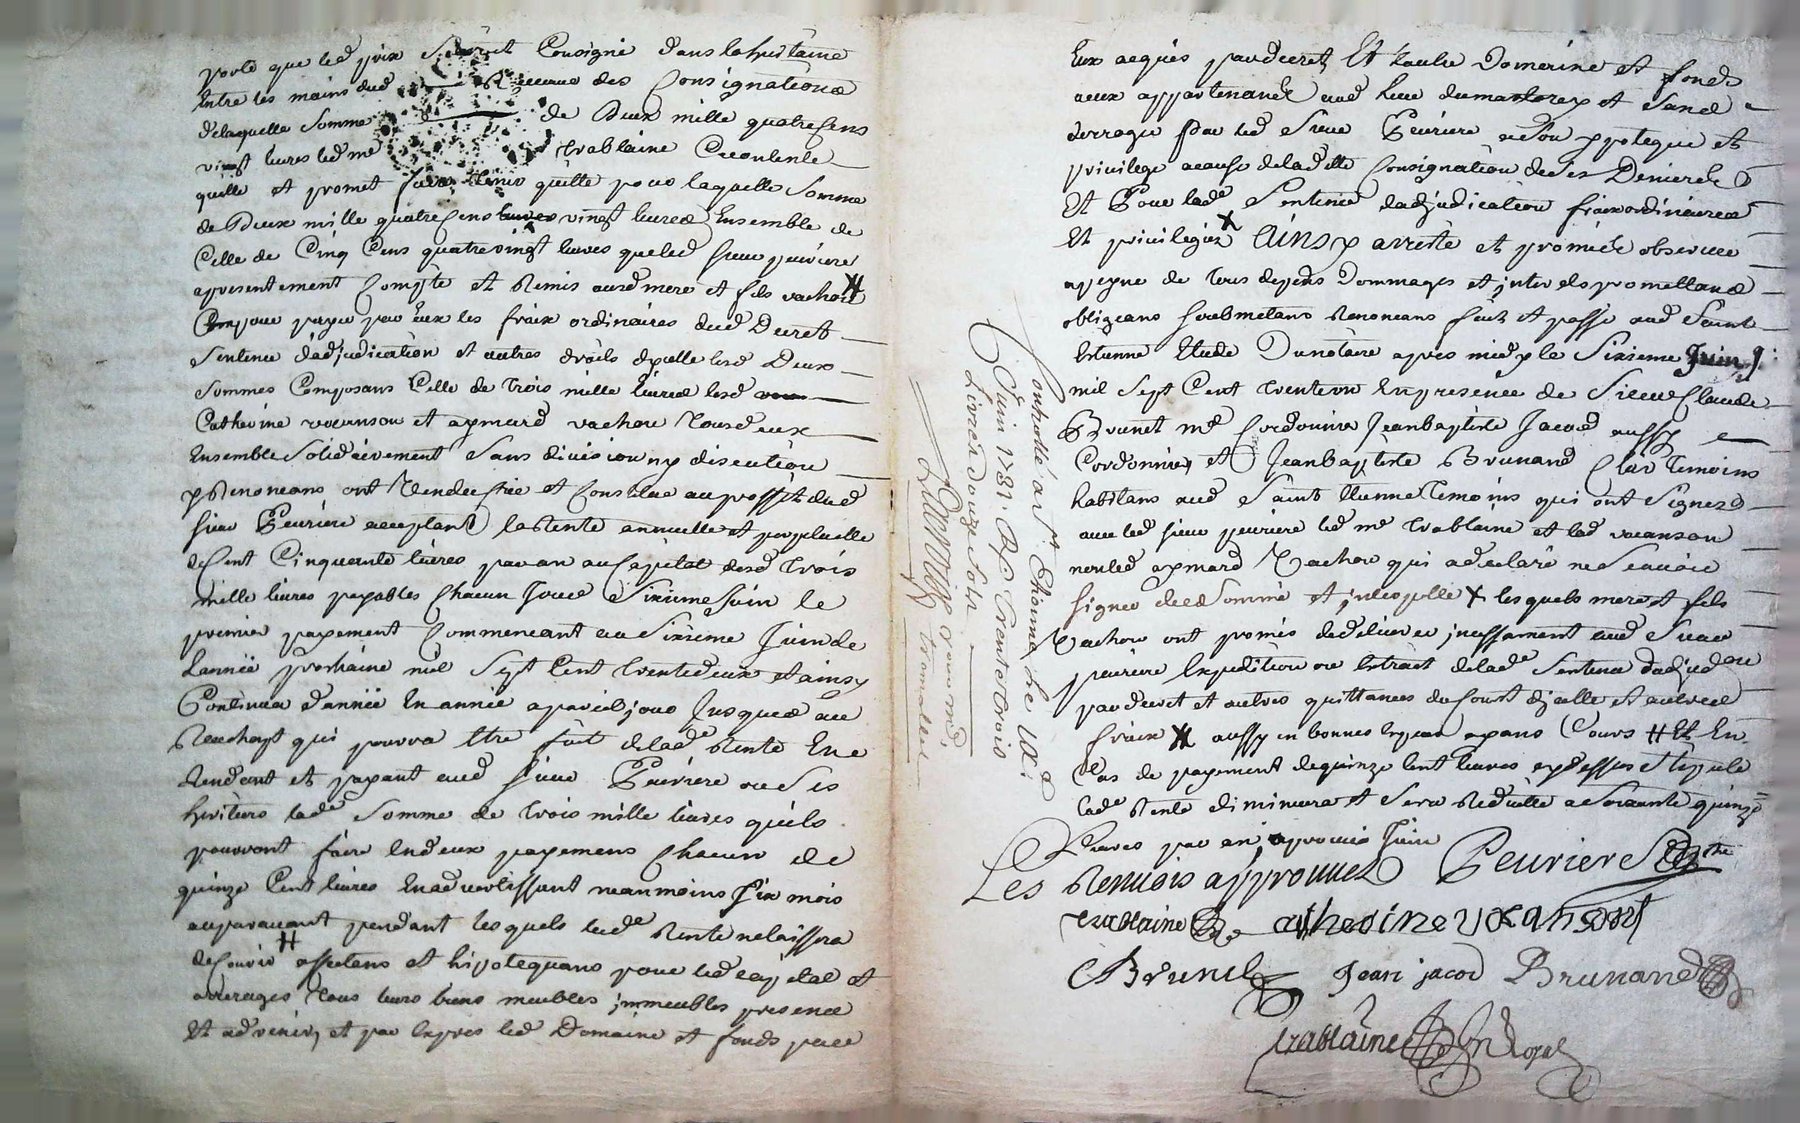 porte que led prix Seroit Consigné dans la huitaine
Entre les mains dud Receveur des Consignations
de laquelle Somme de Deux mille quatre Cens
vingt livres led me Trablaine Contente
quitte et promet faire tenir quitte pour laquelle Somme
de Deux mille quatre Cens vingt livres Ensemble de
Celle de Cinq Cens quatre vingt livres que led sieur peuriere
a presentement Compté et Remis auxd mere et fils vachon
pour payer par Eux les fraix ordinaires dud Decret
Sentence dadjudication et autres droits dycelle lesd Deux
Sommes Composans Celle de Trois mille livres lesd
Catherine vocanson et aymard vachon Tous deux
Ensemble Solidairement Sans division ny discution
y Renonceans ont Vendu Crée et Constitué au proffit dud
sieur Peuriere acceptant la Rente annuelle et perpetuelle
de Cent Cinquante livres par an au Capital desd Trois
mille livres payables Chacun Jour Sixieme Juin le
premier payement Commencant au Sixieme Juin de
Lannée prochaine mil Sept Cent Trente deux et ainsy
Continuer d'année En année a pareil jour Jusques au
Rachapt qui pourra Etre fait de lade Rente En
Rendant et payant aud sieur Peuriere ou Ses
heritiers lade Somme de Trois mille livres quils
pourront faire En deux payemens Chacun de
quinze Cent livres En advertissant neanmoins Six mois
auparavant pendant lesquels lade Rente ne laissera
de Courir # affectans et hipotequans pour led capital et
arrerages Tous leurs biens meubles jmmeubles presens
Et advenir, et par Expres led Domaine et fonds par
Eux acquis par decret, Et Lautre Domerine et fonds
aux appartenans aud lieu du
derroger par led Sieur Peuriere a Son ypoteque et
privilege a cause de lade Consignation de Ses Deniers
Et Pour lade Sentence dadjudication fraix ordinaires
Et privilegiés x Ainsy arresté et promis observer
a peyne de Tous depens Dommages et jnterets promettans
obligeans Soubmetans Renonceans fait et passé aud Saint
Estienne Etude Du notaire apres midy le Sixieme Juin
mil Sept Cent Trente un En presence de Sieur Claude
Brunet me Cordonnier Jean baptiste Jacod aussy
Cordonnier, et Jean baptiste Brunand Clerc Temoins
habitans aud Saint Etienne Temoins qui ont Signez
avec led sieur peuriere led me Trablaine et lad vocanson
non led aymard Vachon qui a declaré ne Scavoir
signer de ce Sommé et jnterpellé x lesquels mere et fils
Vachon ont promis de delivrer jncessament aud Sieur
peuriere Expedition ou Extrait de lade Sentence dadjudon
par decret et autres quittances du Cout dycelle et autres
fraix # aussy en bonnes Especes ayans Cours # Et En
Cas de payement de quinze Cent livres expressement Stipulé
lade Rente diminuera et Sera Reduitte a Soixante quinze
Livres par an, aprouvé Juin
Les Renvois approuves Peuriere
Trablaine catherine vocanson
CBrunet Jean jacod Brunand
Trablaine Nre Royal
Controllé a St Etienne le
Juin 1731. Re Trente trois
Livres Douze sols